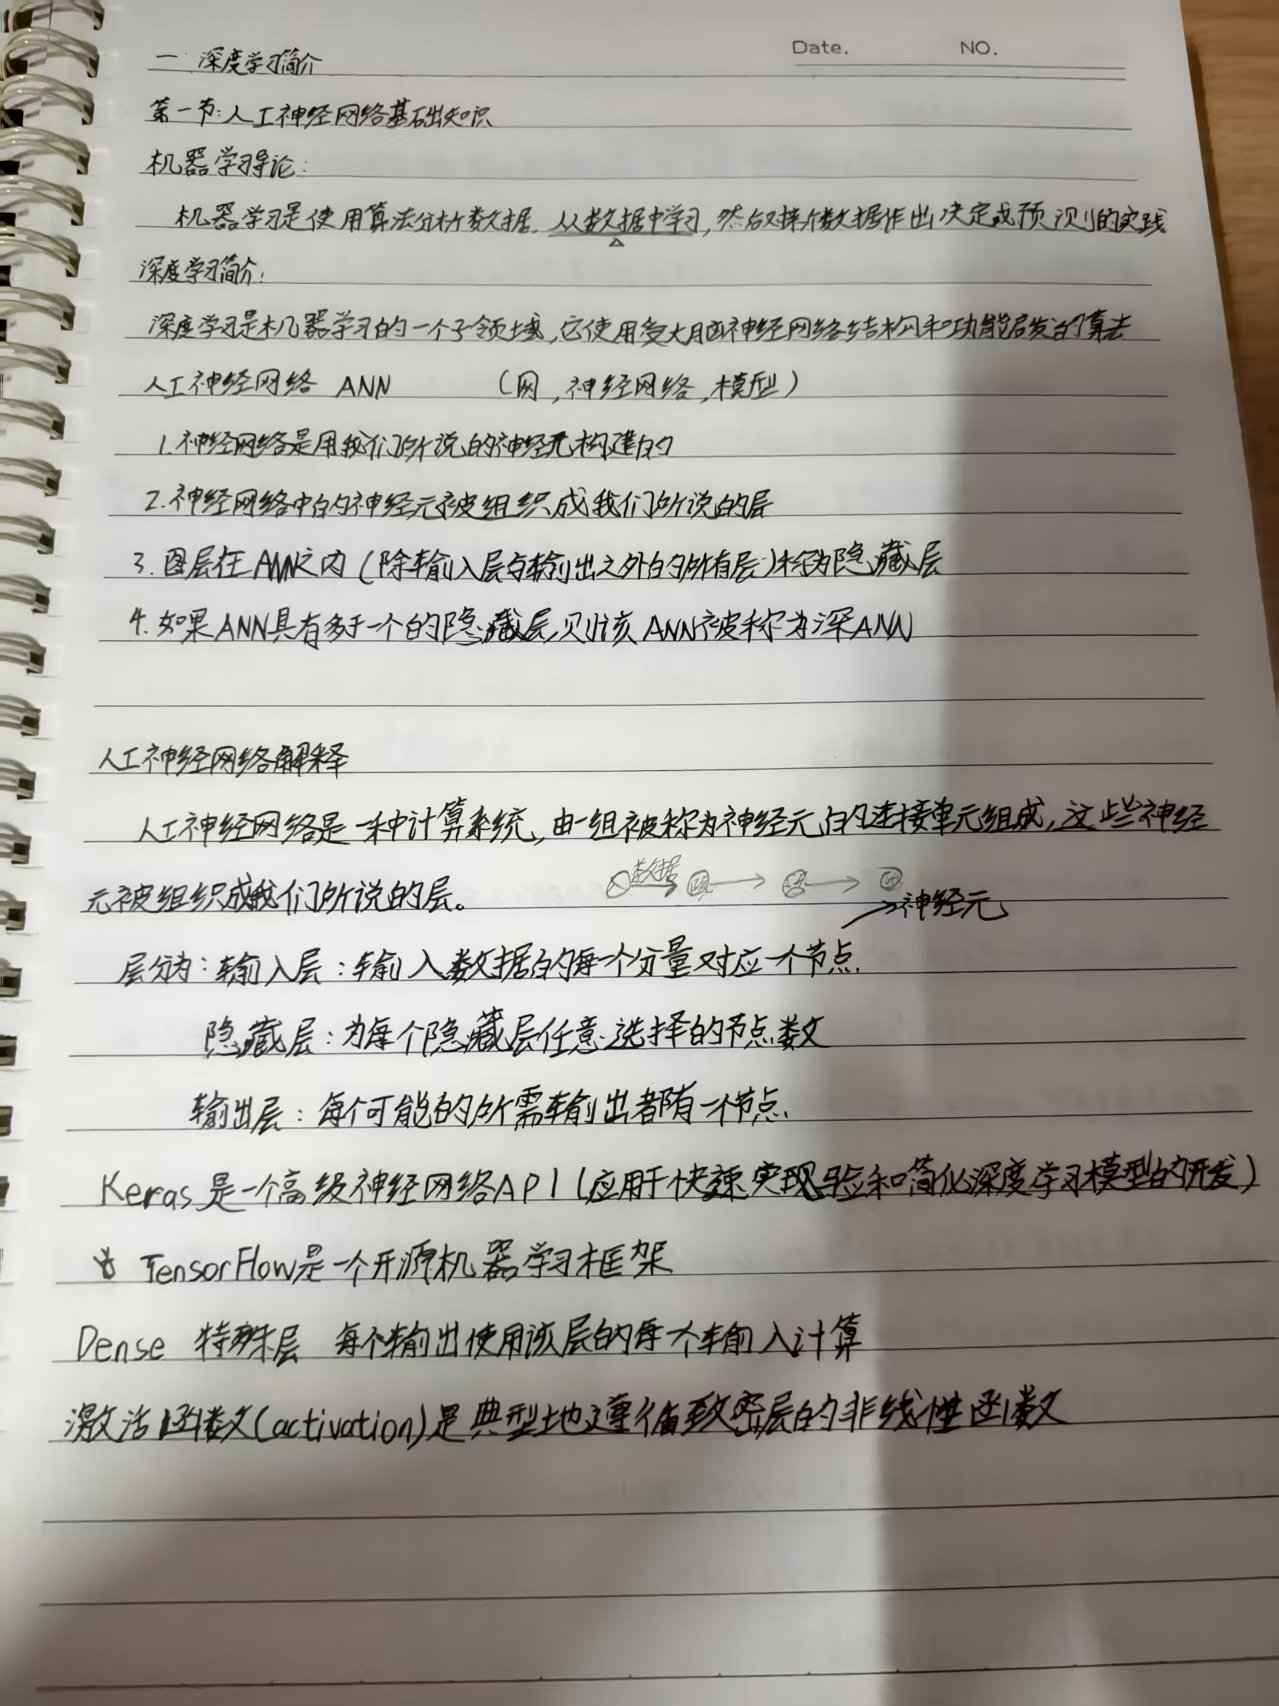 Date. NO.
一.深度学习简介
第一节:人工神经网络基础知识
机器学习导论:
机器学习是使用算法分析数据.从数据中学习,然后对新数据作出决定或预测的实践
深度学习简介:
深度学习是机器学习的一个子领域,它使用受大脑神经网络结构和功能启发的算法
人工神经网络 ANN (网,神经网络,模型)
1.神经网络是用我们所说的神经元构建的
2.神经网络中的神经元被组织成我们所说的层
3.图层在ANN之内(除输入层与输出之外的所有层)称为隐藏层
4.如果ANN具有多于一个的隐藏层,则该ANN被称为深ANN
人工神经网络解释
人工神经网络是一种计算系统,由一组被称为神经元的连接单元组成,这些神经
元被组织成我们所说的层。
数据
神经元
层分为:输入层:输入数据的每个分量对应一个节点.
隐藏层:为每个隐藏层任意选择的节点数
输出层:每个可能的所需输出都有一个节点.
Keras是一个高级神经网络API(应用于快速实现实验和简化深度学习模型的开发)
TensorFlow是一个开源机器学习框架
Dense 特殊层 每个输出使用该层的每个输入计算
激活函数(activation)是典型地遵循致密层的非线性函数